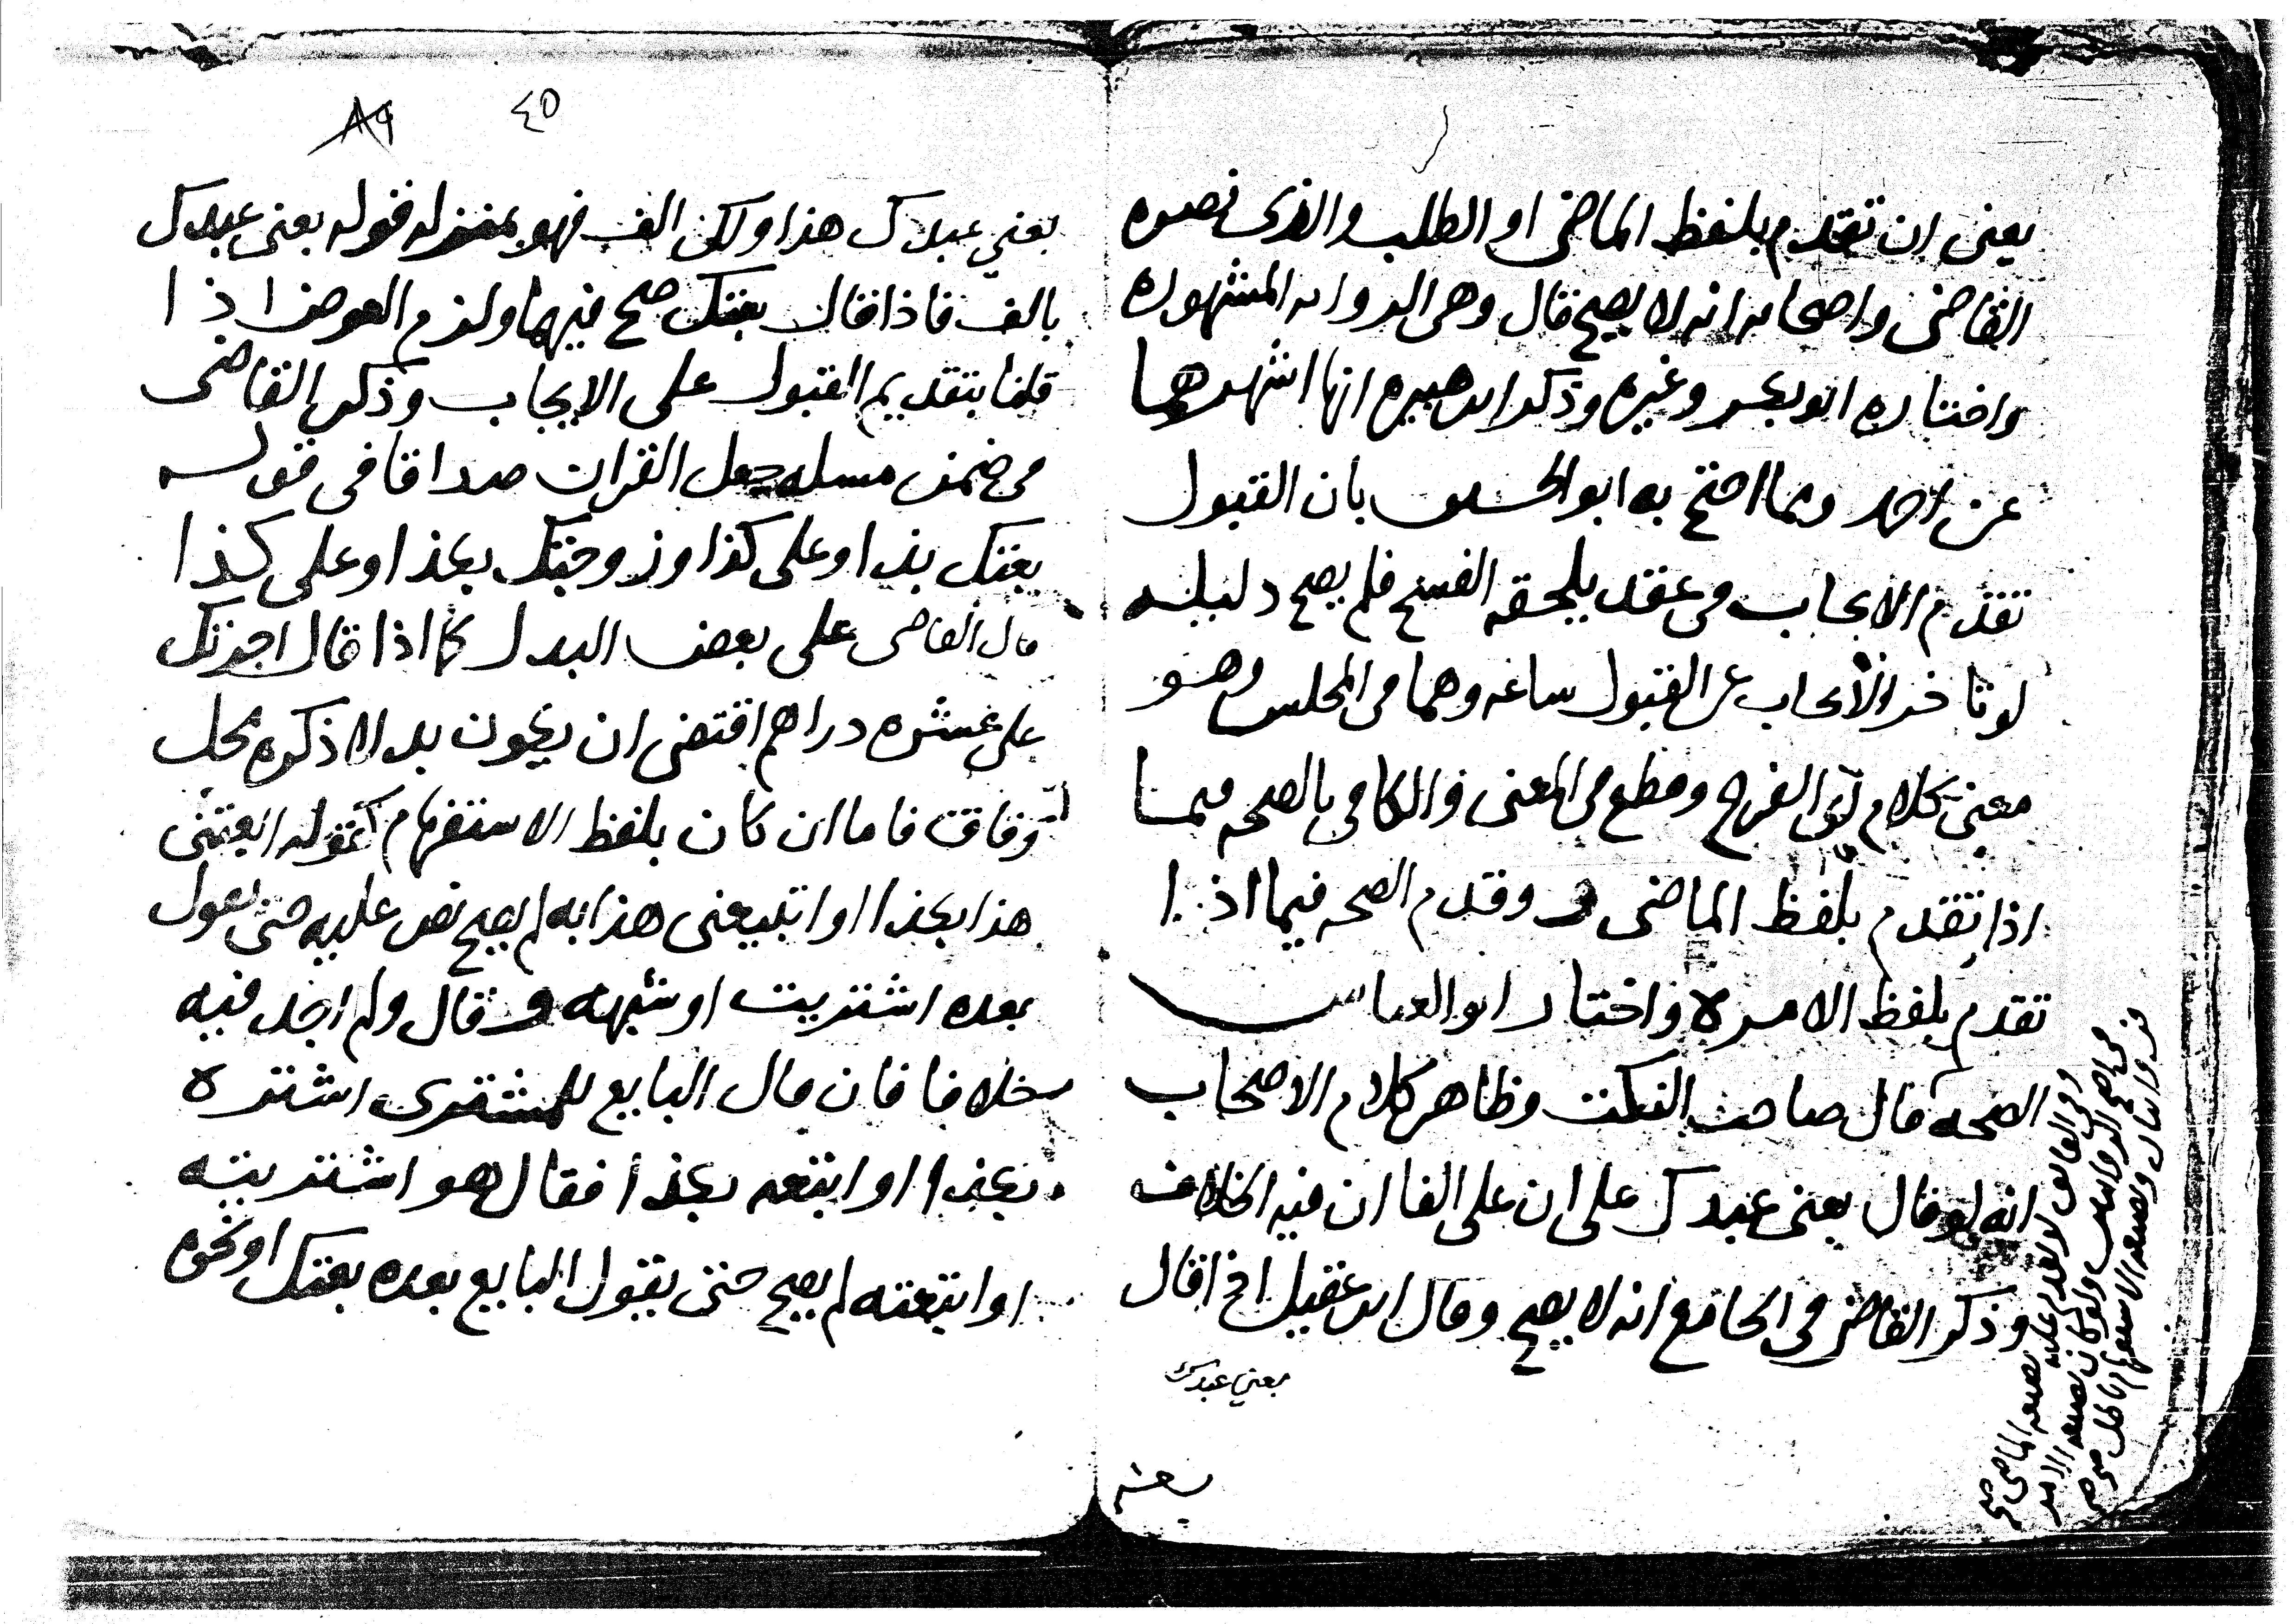 يعنى ان تقدم بلفظ الماضى او الطلب والذى نصره
القاضى واصحابه انه لا يصح قال وهى الروايه المشهوره
واختاره ابو بكر وغيره وذكر ابن هبيره انها اشهرهما
عن احمد ومما احتج به ابو الحسين بان القبول
تقدم الايجاب فى عقد يلحقه الفسخ فلم يصح دليله
لو تاخر الايجاب عن القبول ساعه وهما فى المجلس وهو
معنى كلام ابى الفرج وقطع فى المغنى والكافى بالصحه فيما
اذا تقدم بلفظ الماضى وقدم الصحه فيما اذا
تقدم بلفظ الامر واختار ابو العباس
الصحه قال صاحب النكت وظاهر كلام الاصحاب
انه لو قال بعنى عبدك على ان على الفا ان فيه الخلاف
وذكر القاضى فى الجامع انه لا يصح وقال ابن عقيل اذا قال
بعنى عبدك
وفى الفائق لا تقدم عليه بصيغه الماضى صح
فى اصح الروايتين ولو كان بصيغه الامر
فروايتان وبصيغه الاستفهام باطل
٤٥
٨٩
بعنى عبدك هذا ولك الف فهو بمنزله قوله بعنى عبدك
بالف فاذا قال بعتك صح فيهما ولزم العوض اذا
قلنا بتقديم القبول على الايجاب وذكر القاضى
فى ضمن مسله جعل القران صداقا فى قوله
بعتك بذا وعلى كذا وزوجتك بكذا وعلى كذا
قال القاضى على بعض البدل كما اذا قال اجرتك
على عشره دراهم اقتضى ان يكون بدلا ذكره محل
وفاق فاما ان كان بلفظ الاستفهام كقوله ابعتنى
هذا بكذا او اتبيعنى هذا به لم يصح نص عليه حتى يقول
بعده اشتريت او شبهه وقال ولم اجد فيه
خلافا فان قال البايع للمشترى اشتره
بكذا او ابتعه بكذا فقال هو اشتريته
او ابتعته لم يصح حتى يقول البايع بعده بعتك او نحوه